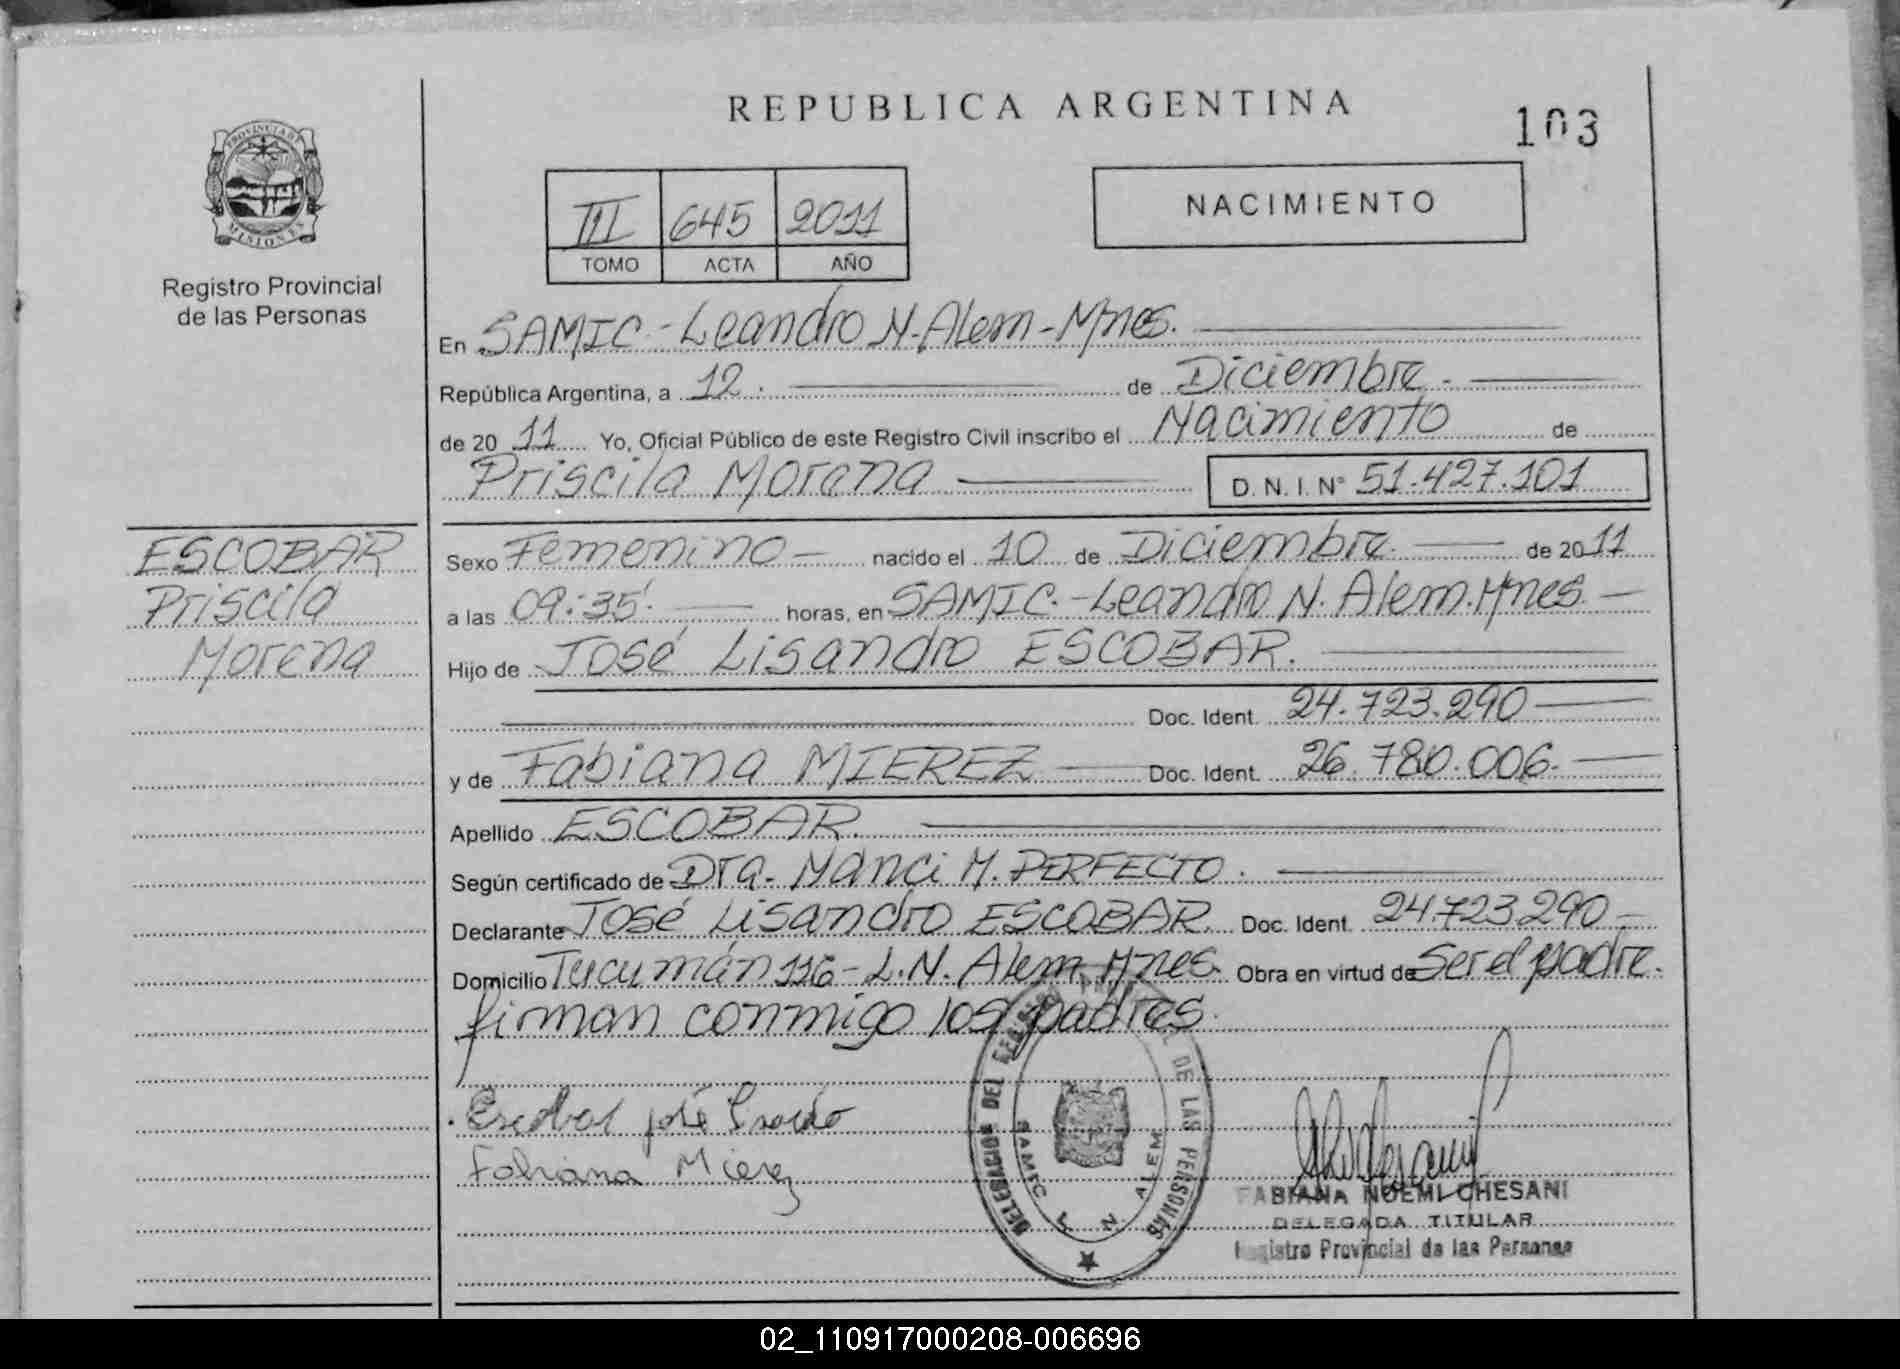 REPUBLICA ARGENTINA
103
PROVINCIA DE
MISIONES
Registro Provincial
de las Personas
III 645 2011
TOMO ACTA AÑO
NACIMIENTO
En SAMIC.-Leandro N.Alem-Mnes.
República Argentina, a 12. de Diciembre.
de 20 11 Yo, Oficial Público de este Registro Civil inscribo el Nacimiento de
Priscila Morena D. N. I. N° 51.427.101
ESCOBAR
Priscila
Morena
Sexo Femenino nacido el 10 de Diciembre. de 20 11
a las 09:35. horas, en SAMIC.-Leandro N. Alem.Mnes.
Hijo de José Lisandro ESCOBAR.
Doc. Ident. 24.723.290
y de Fabiana MIEREZ Doc. Ident. 26.780.006.
Apellido ESCOBAR.
Según certificado de Dra. Nanci M. PERFECTO.
Declarante José Lisandro ESCOBAR. Doc. Ident. 24.723.290
Domicilio Tucumán 116-L.N. Alem.Mnes. Obra en virtud de Ser el padre.
firman conmigo los padres.
Escobar josé
Fabiana Mierez
DELEGACION DEL REGISTRO PROVINCIAL DE LAS PERSONAS
SAMIC L. N. ALEM
FABIANA NOEMI CHESANI
DELEGADA TITULAR
Registro Provincial de las Personas
02_110917000208-006696